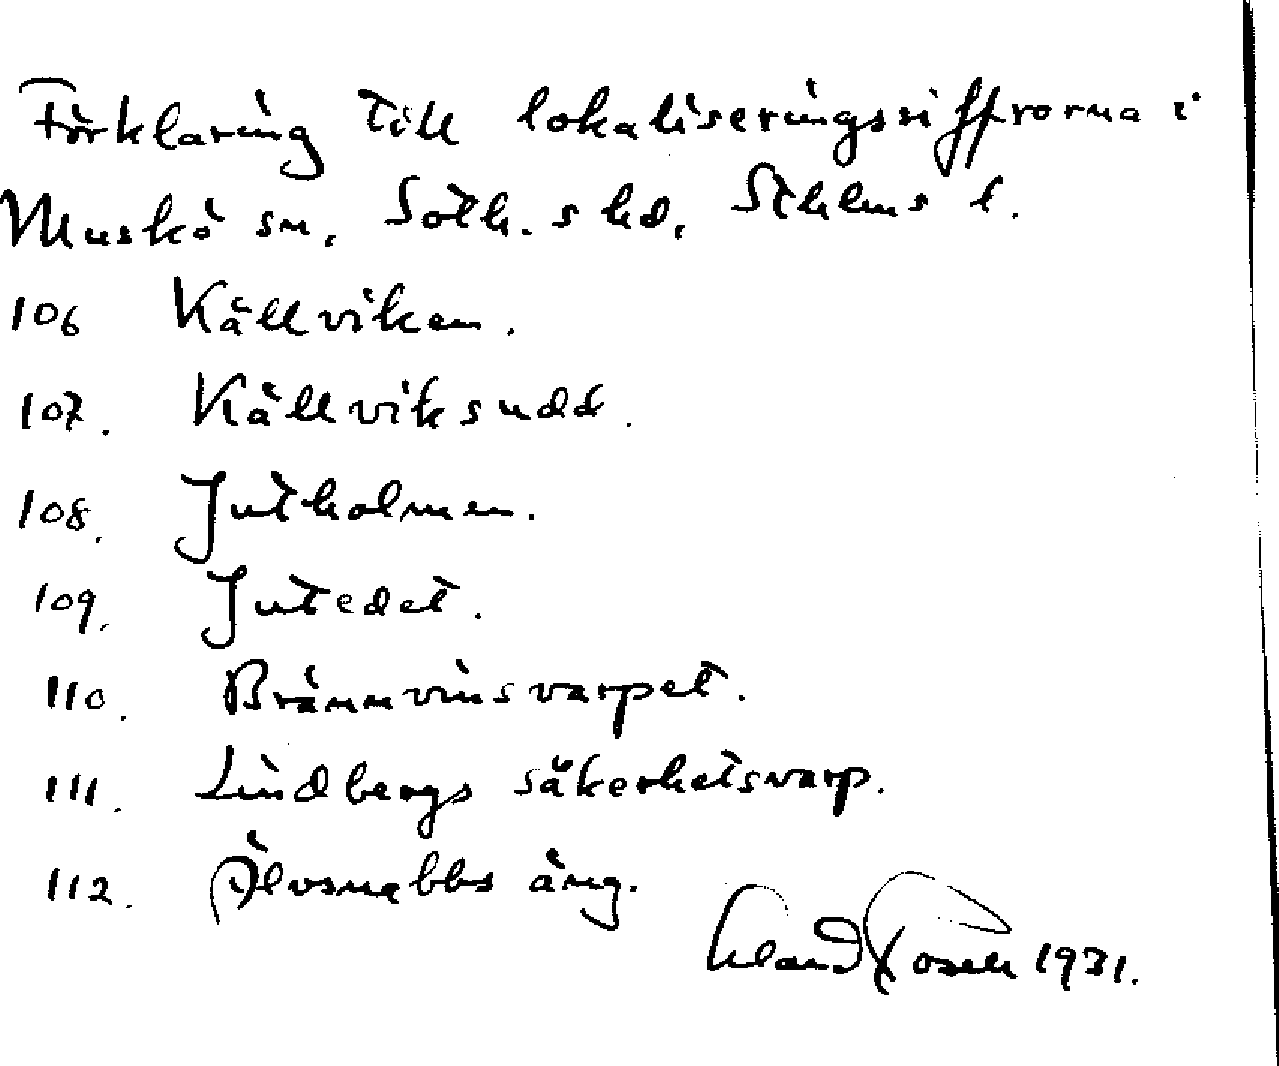 Förklaring till lokaliseringssiffrorna i
Muskö sn, Soth. s hd, Sthlms l.
106 Källviken.
107. Källviksudd.
108. Jutholmen.
109. Jutedet.
110. Brännvinsvarpet.
111. Lindbergs säkerhetsvarp.
112. Älvsnabbs äng.
1931.